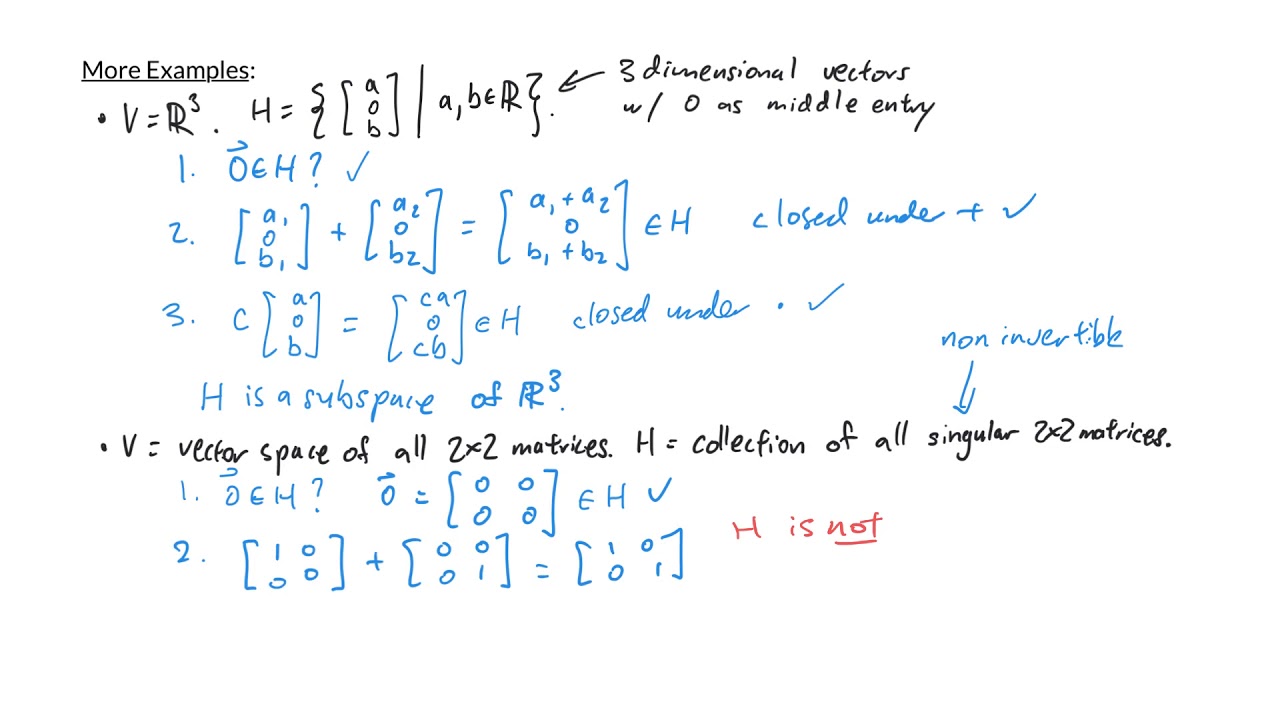 More Examples:
• V = ℝ³. H = { [a 0 b] | a, b ∈ ℝ }. ← 3 dimensional vectors
w/ 0 as middle entry
1. 0⃗ ∈ H ? ✓
2. [a₁ 0 b₁] + [a₂ 0 b₂] = [a₁ + a₂ 0 b₁ + b₂] ∈ H closed under + ✓
3. c [a 0 b] = [ca 0 cb] ∈ H closed under · ✓
non invertible
↓
H is a subspace of ℝ³.
• V = vector space of all 2×2 matrices. H = collection of all singular 2×2 matrices.
1. 0⃗ ∈ H ? 0⃗ = [0 0 0 0] ∈ H ✓
H is not
2. [1 0 0 0] + [0 0 0 1] = [1 0 0 1]